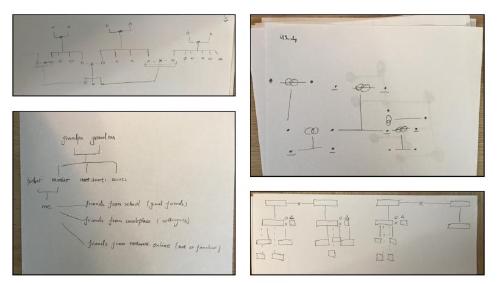 grandpa grandma
father mother
me
friends from school (good friends)
friends from workplace (colleagues)
friends from network online (not so familiar)